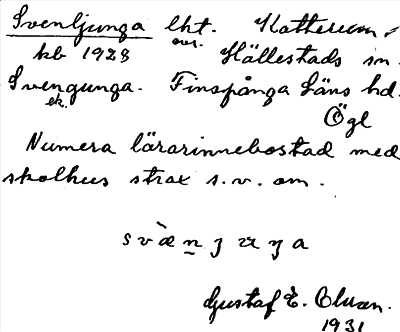 Svenljunga lht. Hattecum,
kb 1928 avs. Hällestads sn
Svengunga. Finspånga läns hd.
ek. Ögl
Numera lärarinnebostad med
skolhus strax s.v. om.
Gustaf E.
1931